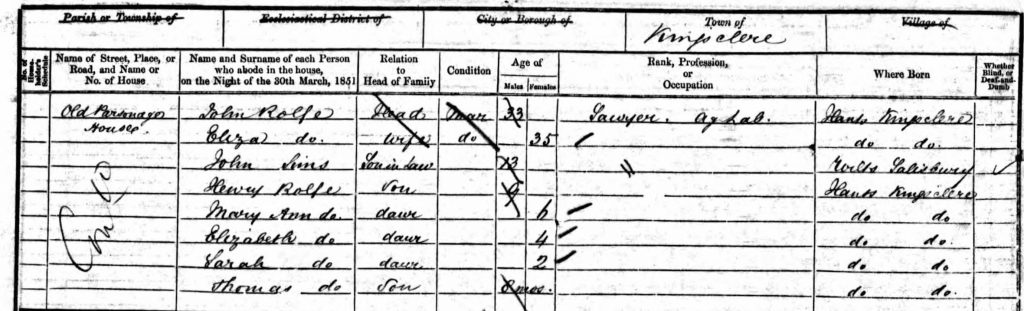 Parish or Township of Ecclesiastical District of City or Borough of Town of Village of
Kingsclere
No. of House-holder's Schedule Name of Street, Place, or Road, and Name or No. of House Name and Surname of each Person who abode in the house, on the Night of the 30th March, 1851 Relation to Head of Family Condition Age of Males Females Rank, Profession, or Occupation Where Born Whether Blind, or Deaf-and-Dumb
Old Parsonage John Rolfe Head Mar 33 Sawyer. Ag Lab. Hants Kingsclere
House, Eliza do. wife do 35 do do.
John Sims Son in Law 13 " Wilts Salisbury
Henry Rolfe Son 9 Hants Kingsclere
Mary Ann do. daur 6 do do.
Elizabeth do daur 4 do do.
Sarah do daur 2 do do.
Thomas do Son 8 mos. do do.